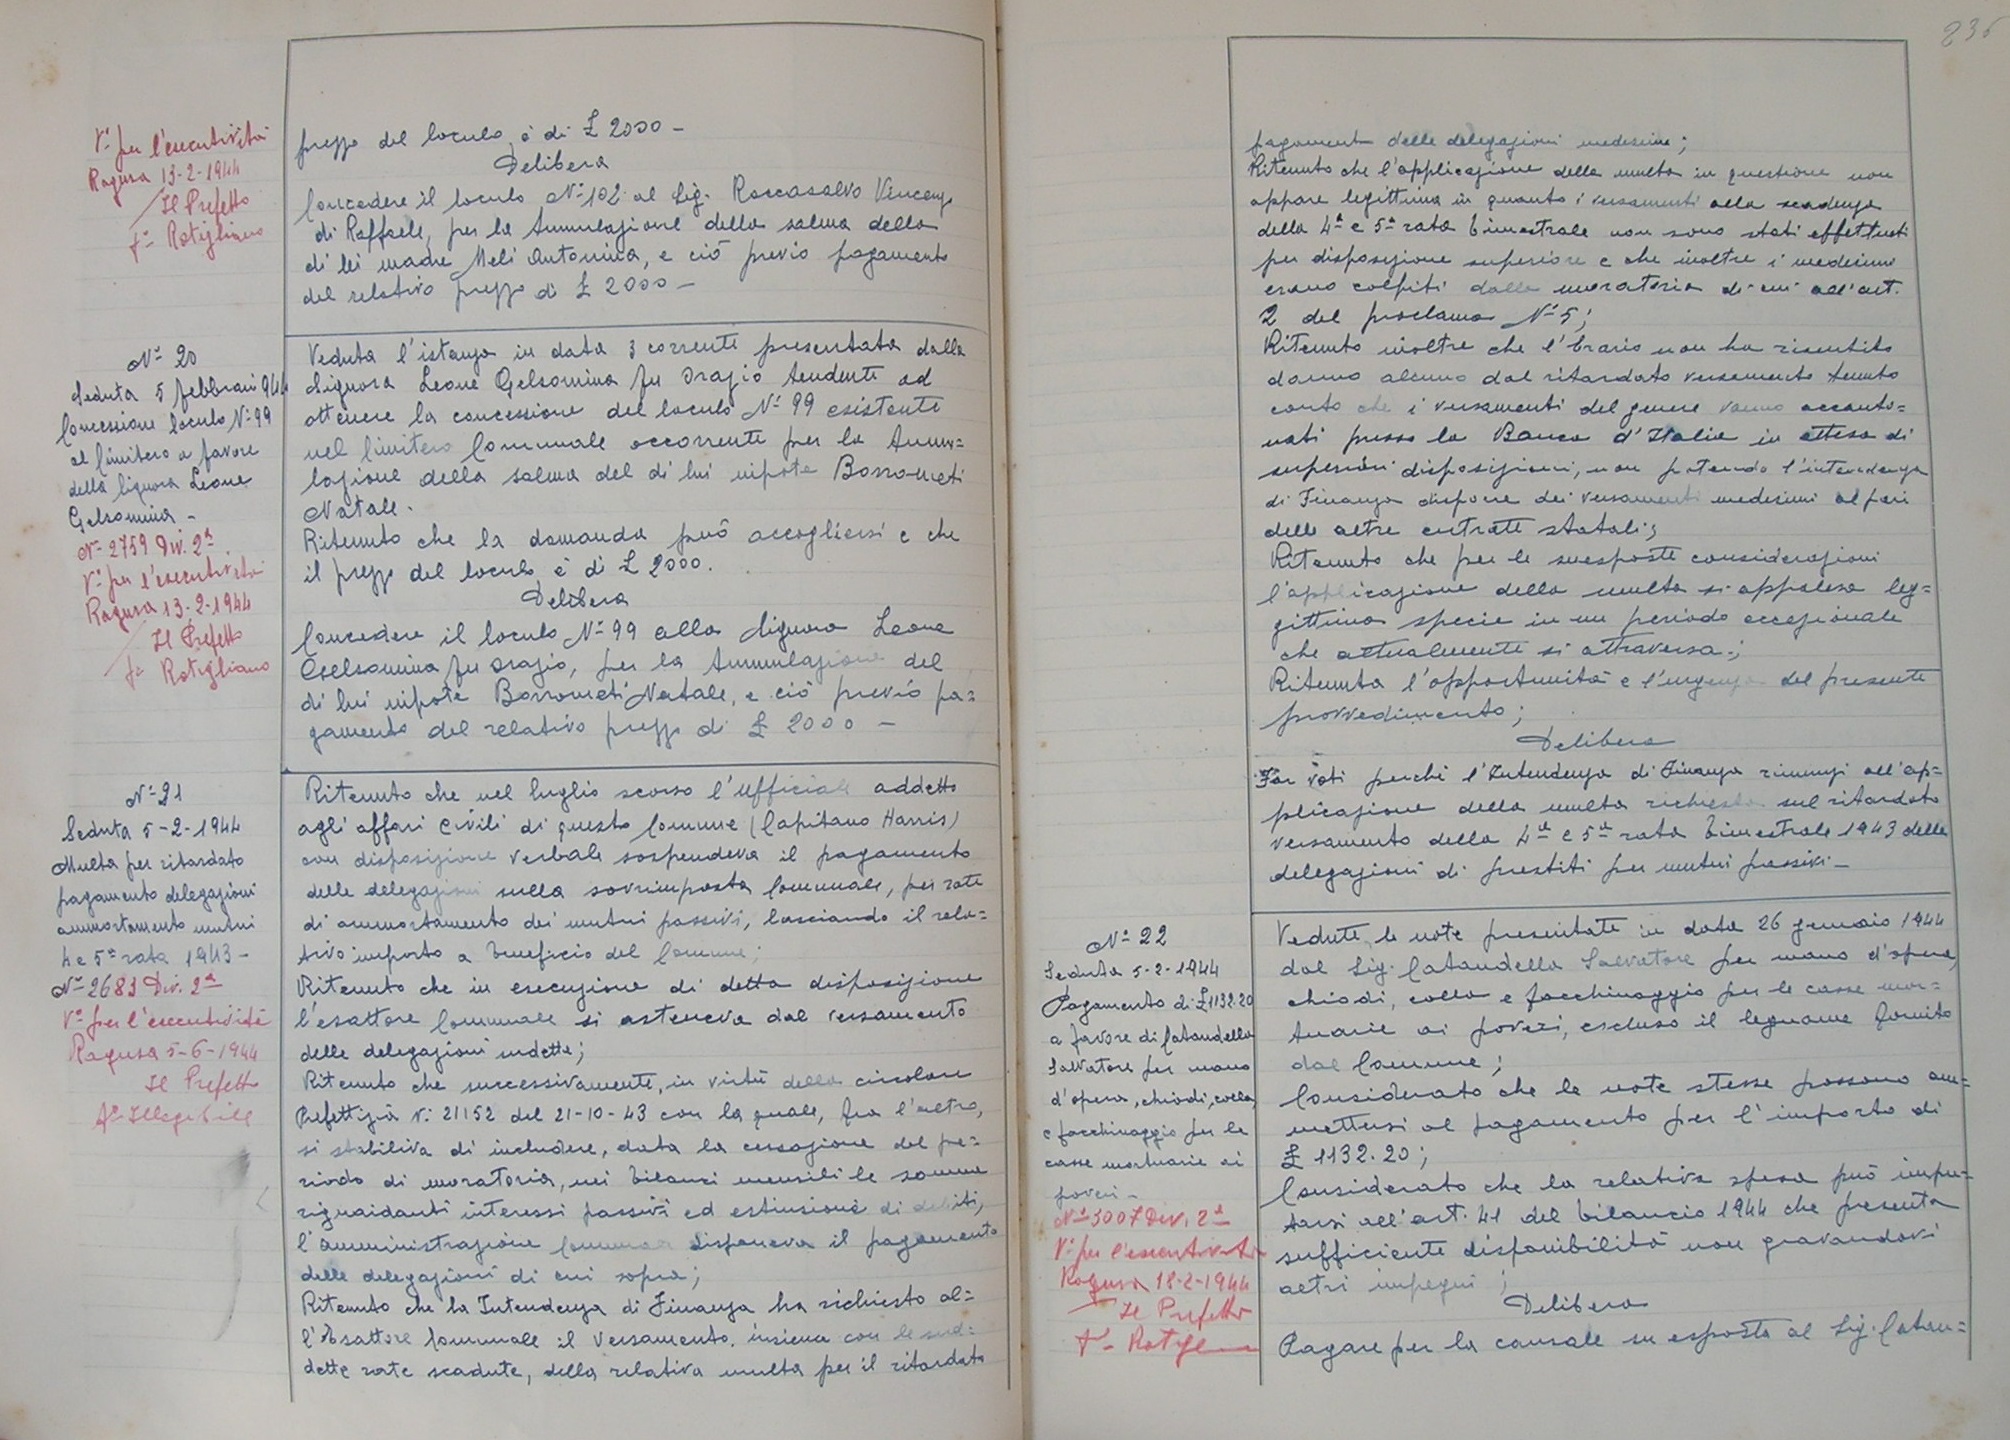 236
V° per l'esecutività
Ragusa 13-2-1944
Il Prefetto
f° Rotigliano
prezzo del loculo è di £ 2000 -
Delibera
Concedere il loculo N° 102 al Sig. Roccasalvo Vincenzo
di Raffaele, per la tumulazione della salma della
di lei madre Meli Antonina, e ciò previo pagamento
del relativo prezzo di £ 2000 -
N° 20
Seduta 5 febbraio 944
Concessione loculo N° 99
al Cimitero a favore
della Signora Leone
Gelsomina -
N° 2759 Div. 2ª
V° per l'esecutività
Ragusa 13-2-1944
Il Prefetto
f° Rotigliano
Veduta l'istanza in data 3 corrente presentata dalla
Signora Leone Gelsomina fu Orazio tendente ad
ottenere la concessione del loculo N° 99 esistente
nel Cimitero Comunale occorrente per la tumu=
lazione della salma del di lui nipote Borrometi
Natale.
Ritenuto che la domanda può accogliersi e che
il prezzo del loculo è di £ 2000.
Delibera
Concedere il loculo N° 99 alla Signora Leone
Gelsomina fu Orazio, per la tumulazione del
di lui nipote Borrometi Natale, e ciò previo pa=
gamento del relativo prezzo di £ 2000 -
N° 21
Seduta 5-2-1944
Multa per ritardato
pagamento delegazioni
ammortamento mutui
4 e 5ª rata 1943 -
N° 2683 Div. 2ª
V° per l'esecutività
Ragusa 5-6-1944
Il Prefetto
f° Illegibile
Ritenuto che nel luglio scorso l'Ufficiale addetto
agli affari civili di questo Comune (Capitano Harris)
con disposizione verbale sospendeva il pagamento
delle delegazioni sulla sovrimposta Comunale, per rate
di ammortamento dei mutui passivi, lasciando il rela=
tivo importo a beneficio del Comune;
Ritenuto che in esecuzione di detta disposizione
l'esattore Comunale si asteneva dal versamento
delle delegazioni indette;
Ritenuto che successivamente, in virtù della circolare
Prefettizia N. 21152 del 21-10-43 con la quale, fra l'altro,
si stabiliva di includere, data la cessazione del pe=
riodo di moratoria, nei bilanci mensili le somme
riguardanti interessi passivi ed estinsione di debiti,
l'amministrazione Comunale disponeva il pagamento
delle delegazioni di cui sopra;
Ritenuto che la Intendenza di Finanza ha richiesto al=
l'Esattore Comunale il versamento, insieme con le sud=
dette rate scadute, della relativa multa per il ritardato
pagament delle delegazioni medesime;
Ritenuto che l'applicazione della multa in questione non
appare legittima in quanto i versamenti alla scadenza
della 4ª e 5ª rata bimestrale non sono stati effettuati
per disposizione superiore e che inoltre i medesimi
erano colpiti dalla moratoria di cui all'art.
2 del proclama N° 5;
Ritenuto inoltre che l'Erario non ha risentito
danno alcuno dal ritardato versamento tenuto
conto che i versamenti del genere vanno accanto=
nati presso la Banca d'Italia in attesa di
superiori disposizioni, non potendo l'intendenza
di Finanza disporre dei versamenti medesimi al pari
delle altre entrate statali;
Ritenuto che per le suesposte considerazioni
l'applicazione della multa si appalesa leg=
gittima specie in un periodo eccezionale
che attualmente si attraversa;
Ritenuta l'opportunità e l'urgenza del presente
provvedimento;
Delibera
Far voti perchè l'Intendenza di Finanza rinunzi all'ap=
plicazione della multa richiesta sul ritardato
versamento della 4ª e 5ª rata bimestrale 1943 delle
delegazioni di prestiti per mutui passivi -
N° 22
Seduta 5-2-1944
Pagamento di £ 1132.20
a favore di Catandella
Salvatore per mano
d'opera, chiodi, colla,
e facchinaggio per le
casse mortuarie ai
poveri -
N° 3007 Div. 2ª
V° per l'esecutività
Ragusa 18-2-1944
Il Prefetto
f° Rotigliano
Vedute le note presentate in data 26 gennaio 1944
dal Sig. Catandella Salvatore per mano d'opera,
chiodi, colla e facchinaggio per le casse mor=
tuarie ai poveri, escluso il legname fornito
dal Comune;
Considerato che le note stesse possono am=
mettersi al pagamento per l'importo di
£ 1132.20;
Considerato che la relativa spesa può impu=
tarsi all'art. 41 del bilancio 1944 che presenta
sufficiente disponibilità non gravandovi
altri impegni;
Delibera
Pagare per la causale su esposta al Sig. Catan=